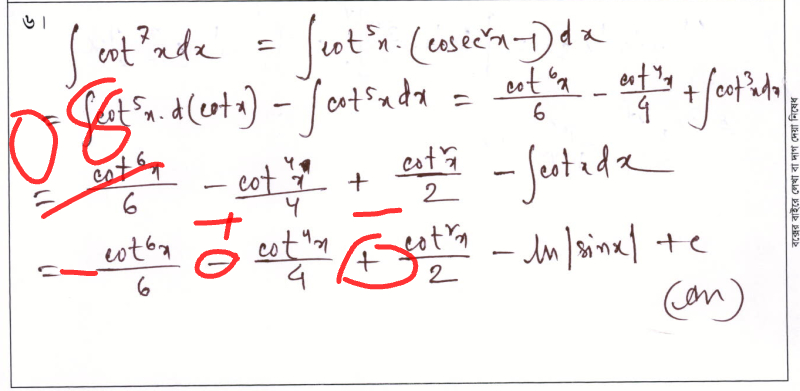 ৬।
∫ cot⁷x dx = ∫ cot⁵x . (cosec²x - 1) dx
= ∫ cot⁵x . d(cot x) - ∫ cot⁵x dx = cot⁶x/6 - cot⁴x/4 + ∫ cot³x dx
08
= cot⁶x/6 - cot⁴x/4 + cot²x/2 - ∫ cot x dx
+ −
= − cot⁶x/6 - cot⁴x/4 + cot²x/2 - ln|sinx| + c
(Ans)
বক্সের বাইরে লেখা বা দাগ দেয়া নিষেধ